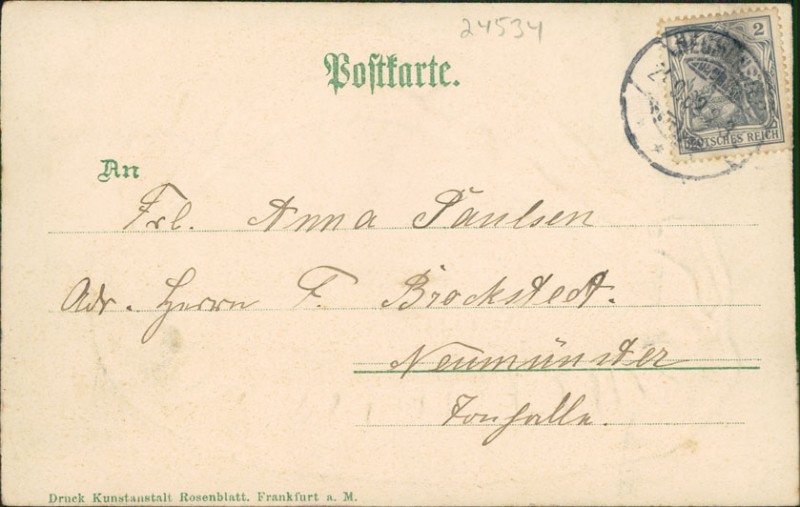 24534
2
NEUMÜNSTER
DEUTSCHES REICH
Postkarte.
An
Frl. Anna Paulsen
Adr. Herrn F. Brockstedt.
Neumünster
Tonhalle.
Druck Kunstanstalt Rosenblatt. Frankfurt a. M.